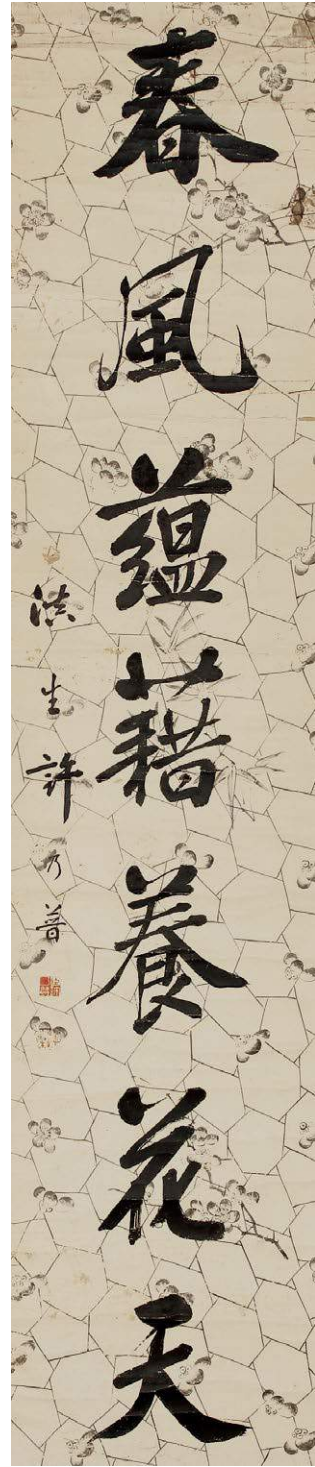 春風蘊藉養花天
滇生許乃普